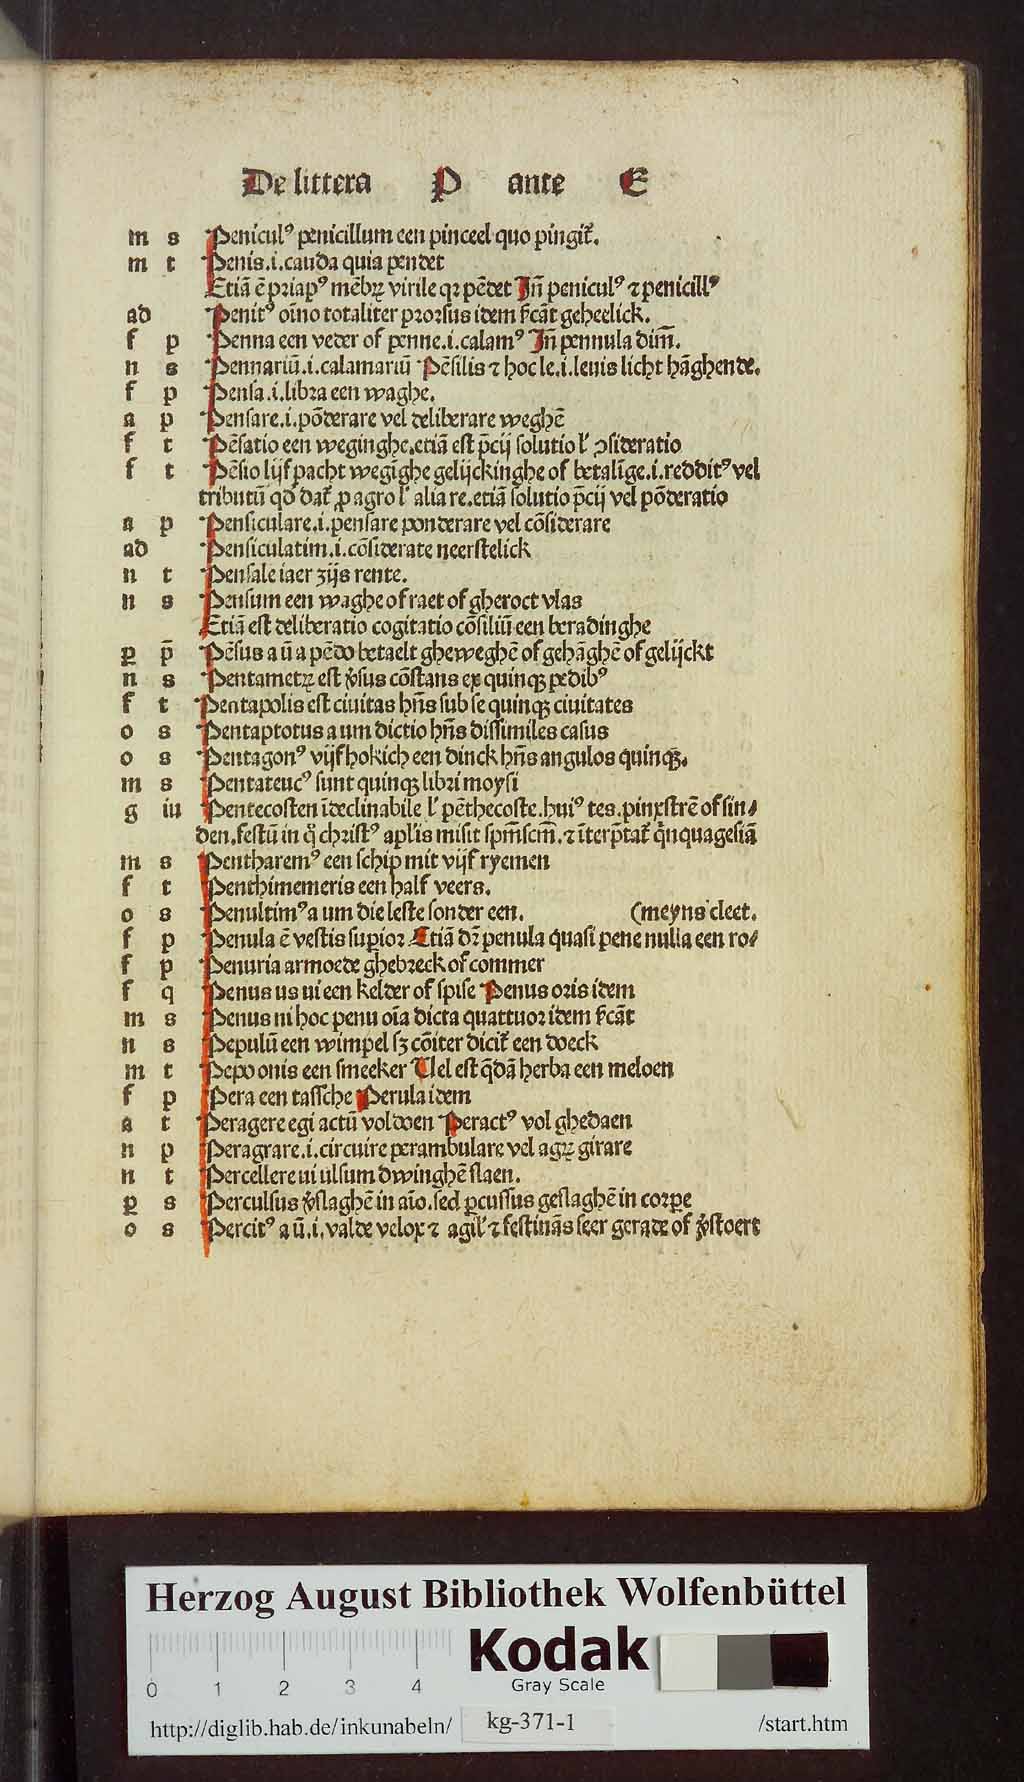 De littera P ante E
m s Penicul⁹ penicillum een pinceel quo pingit᷑.
m t Penis.i.cauda quia pendet
Etiā ē priap⁹ mēbrꝝ virile qꝛ pēdet Jn̄ penicul⁹ ⁊ penicill⁹
ad Penit⁹ oīno totaliter prorsus idem ſ̓cāt geheelick.
f p Penna een veder of penne.i.calam⁹ Jn̄ pennula dim̄.
n s Pennariū.i.calamariū Pēsilis ⁊ hoc le.i.leuis licht hāghende.
f p Pensa.i.libra een waghe.
a p Pensare.i.pōderare vel deliberare weghē
f t Pēsatio een weginghe.etiā est p̄cij solutio lˀ ↄsideratio
f t Pēsio lijf pacht wegighe gelijckinghe of betalīge.i.reddit⁹ vel
tributū qd̓ dat᷑ ꝓ agro lˀ alia re.etiā solutio p̄cij vel pōderatio
a p Pensiculare.i.pensare ponderare vel cōsiderare
ad Pensiculatim.i.cōsiderate neerstelick
n t Pensale iaer zijs rente.
n s Pensum een waghe of raet of gheroct vlas
Etiā est deliberatio cogitatio cōsiliū een beradinghe
ꝑ p̄ Pēsus a ū a pēdo betaelt gheweghē of gehāghē of gelijckt
n s Pentametꝝ est v̓sus cōstans ex quinqꝫ pedib⁹
f t Pentapolis est ciuitas hn̄s sub se quinqꝫ ciuitates
o s Pentaptotus a um dictio hn̄s dissimiles casus
o s Pentagon⁹ vijfhokich een dinck hn̄s angulos quinqꝫ.
m s Pentateuc⁹ sunt quinqꝫ libri moysi
g iu Pentecosten īdeclinabile lˀ pēthecoste.hui⁹ tes.pinxstrē of sin⸗
den.festū in q̊ christ⁹ apl̓is misit spm̄scm̄.⁊ īterp̄tat᷑ q̄nquagesiā
m s Pentharem⁹ een schip mit vijf ryemen
f t Penthimemeris een half veers.
o s Penultim⁹ a um die leste sonder een. (meyns cleet.
f p Penula ē vestis superior Etiā dr̄ penula quasi pene nulla een ro⸗
f p Penuria armoede ghebreck of commer
f q Penus us ui een kelder of spise Penus oris idem
m s Penus ni hoc penu oīa dicta quattuor idem ſ̓cāt
n s Pepulū een wimpel sꝫ cōiter dicit᷑ een doeck
m t Pepo onis een smeeker Uel est q̄dā herba een meloen
f p Pera een tassche Perula idem
a t Peragere egi actū voldoen Peract⁹ vol ghedaen
n p Peragrare.i.circuire perambulare vel agꝝ girare
n t Percellere ui ulsum dwinghē slaen.
ꝑ s Perculsus v̓slaghē in aīo.sed ꝑcussus geslaghē in corpe
o s Percit⁹ a ū.i.valde velox ⁊ agilˀ ⁊ festinās seer gerade of v̓stoert
Herzog August Bibliothek Wolfenbüttel
Kodak
Gray Scale
0 1 2 3 4
http://diglib.hab.de/inkunabeln/ kg-371-1 /start.htm